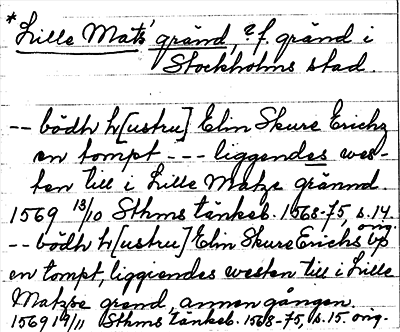 *Lille Mats' gränd, ? f. gränd i
Stockholms stad.
-- bödh h[ustru] Elin Skure Erichz
en tompt --- liggendes wes-
ten till i Lille Matze grännd.
1569 13/10 Sthms tänkeb. 1568-75, s. 14.
orig.
-- bödh h[ustru] Elin Skure Erichs vp
en tompt, liggiendes westen till i Lille
Matzse grend, annen gången.
1569 19/11 Sthms tänkeb. 1568-75, s. 15. orig.